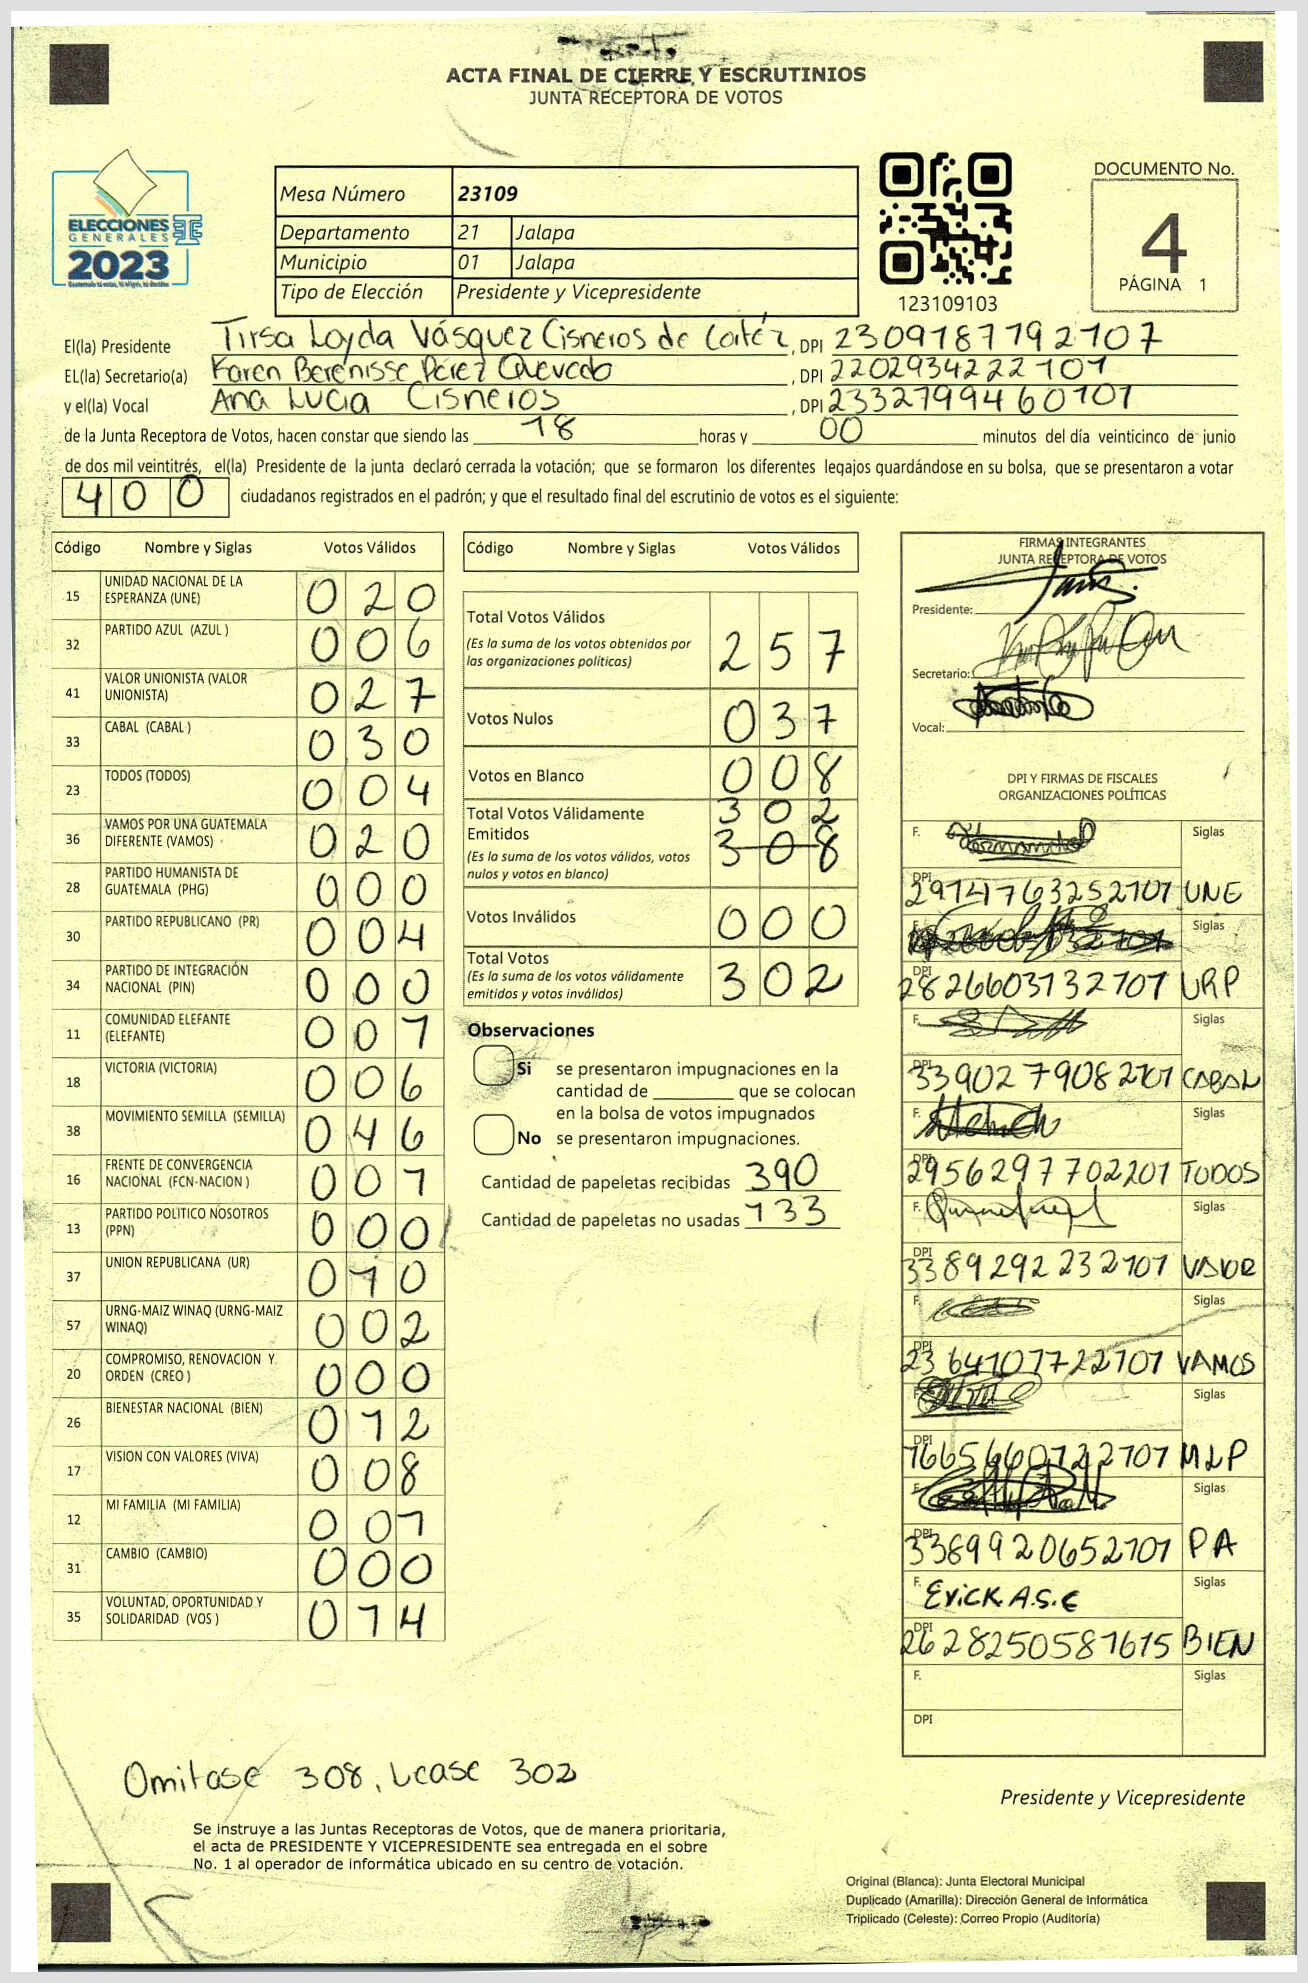 ACTA FINAL DE CIERRE Y ESCRUTINIOS
JUNTA RECEPTORA DE VOTOS
ELECCIONES
GENERALES
2023
Mesa Número 23109
Departamento 21 Jalapa
Municipio 01 Jalapa
Tipo de Elección Presidente y Vicepresidente
123109103
DOCUMENTO No.
4
PÁGINA 1
El(la) Presidente Tirsa Loyda Vásquez Cisneros de Cortéz, DPI 2309187792107
EL(la) Secretario(a) Karen Berenisse Pérez Quevedo, DPI 2202934222101
y el(la) Vocal Ana Lucia Cisneros, DPI 2332799460101
de la Junta Receptora de Votos, hacen constar que siendo las 18 horas y 00 minutos del día veinticinco de junio
de dos mil veintitrés, el(la) Presidente de la junta declaró cerrada la votación; que se formaron los diferentes legajos guardándose en su bolsa, que se presentaron a votar
400 ciudadanos registrados en el padrón; y que el resultado final del escrutinio de votos es el siguiente:
Código Nombre y Siglas Votos Válidos
15 UNIDAD NACIONAL DE LA ESPERANZA (UNE) 020
32 PARTIDO AZUL (AZUL ) 006
41 VALOR UNIONISTA (VALOR UNIONISTA) 027
33 CABAL (CABAL ) 030
23 TODOS (TODOS) 004
36 VAMOS POR UNA GUATEMALA DIFERENTE (VAMOS) 020
28 PARTIDO HUMANISTA DE GUATEMALA (PHG) 000
30 PARTIDO REPUBLICANO (PR) 004
34 PARTIDO DE INTEGRACIÓN NACIONAL (PIN) 000
11 COMUNIDAD ELEFANTE (ELEFANTE) 001
18 VICTORIA (VICTORIA) 006
38 MOVIMIENTO SEMILLA (SEMILLA) 046
16 FRENTE DE CONVERGENCIA NACIONAL (FCN-NACION ) 001
13 PARTIDO POLITICO NOSOTROS (PPN) 000
37 UNION REPUBLICANA (UR) 010
57 URNG-MAIZ WINAQ (URNG-MAIZ WINAQ) 002
20 COMPROMISO, RENOVACION Y ORDEN (CREO ) 000
26 BIENESTAR NACIONAL (BIEN) 012
17 VISION CON VALORES (VIVA) 008
12 MI FAMILIA (MI FAMILIA) 001
31 CAMBIO (CAMBIO) 000
35 VOLUNTAD, OPORTUNIDAD Y SOLIDARIDAD (VOS ) 014
Código Nombre y Siglas Votos Válidos
Total Votos Válidos 257
(Es la suma de los votos obtenidos por
las organizaciones políticas)
Votos Nulos 037
Votos en Blanco 008
Total Votos Válidamente Emitidos 302
308
(Es la suma de los votos válidos, votos
nulos y votos en blanco)
Votos Inválidos 000
Total Votos 302
(Es la suma de los votos válidamente
emitidos y votos inválidos)
Observaciones
Si se presentaron impugnaciones en la
cantidad de ________ que se colocan
en la bolsa de votos impugnados
No se presentaron impugnaciones.
Cantidad de papeletas recibidas 390
Cantidad de papeletas no usadas 133
FIRMAS INTEGRANTES
JUNTA RECEPTORA DE VOTOS
Presidente:
Secretario:
Vocal:
DPI Y FIRMAS DE FISCALES
ORGANIZACIONES POLÍTICAS
F. Siglas
DPI 2974763252101 UNE
F. Siglas
DPI 2826603132101 URP
F. Siglas
DPI 3390279082101 CABAL
F. Siglas
DPI 2956297702201 TODOS
F. Siglas
DPI 3389292232101 VALOR
F. Siglas
DPI 2364107722101 VAMOS
F. Siglas
DPI 1665660722101 MLP
F. Siglas
DPI 3389920652101 PA
F. Erick A.S.E Siglas
DPI 2628250581615 BIEN
F. Siglas
DPI
Omitase 308, Lease 302
Presidente y Vicepresidente
Se instruye a las Juntas Receptoras de Votos, que de manera prioritaria,
el acta de PRESIDENTE Y VICEPRESIDENTE sea entregada en el sobre
No. 1 al operador de informática ubicado en su centro de votación.
Original (Blanca): Junta Electoral Municipal
Duplicado (Amarilla): Dirección General de Informática
Triplicado (Celeste): Correo Propio (Auditoría)